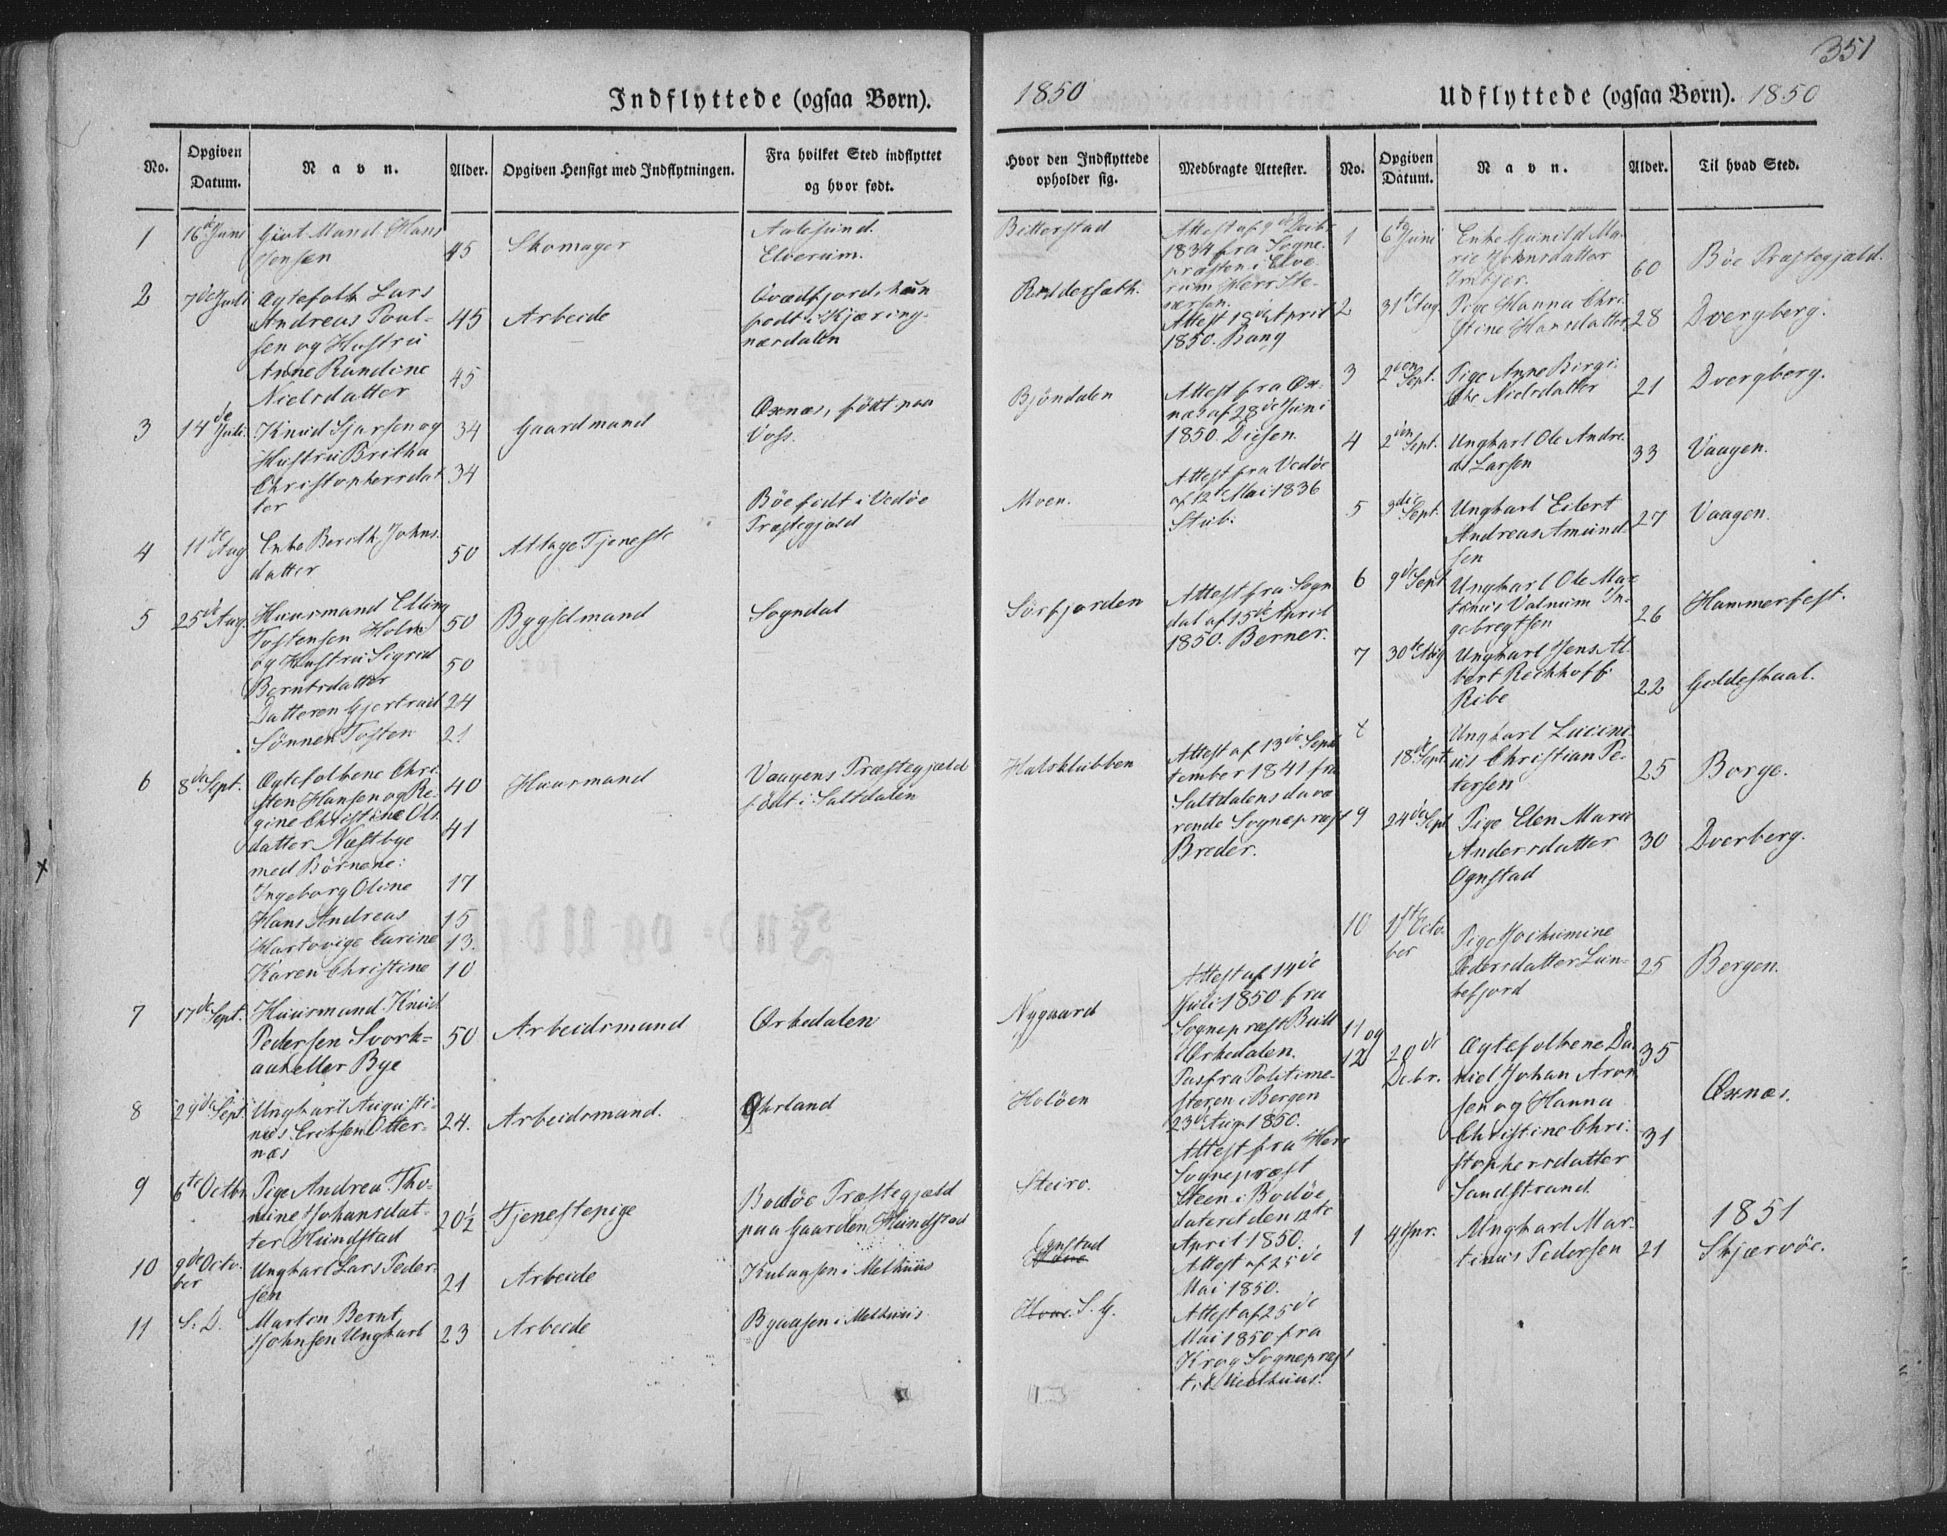 351
Indflyttede (ogsaa Børn).
1850
Udflyttede (ogsaa Børn). 1850
No.
Opgiven Datum.
Navn.
Alder.
Opgiven Hensigt med Indflytningen.
Fra hvilket Sted indflyttet og hvor født.
Hvor den Indflyttede opholder sig.
Medbragte Attester.
No.
Opgiven Datum.
Navn.
Alder.
Til hvad Sted.
1
16de Juni
Givt Mand Hans
Jensen
45
Skomager
Aalesund.
Elverum.
Bitterstad
Attest af 9de Decbr
1834 fra Sogne-
præsten i Elve-
rum Herr Ste-
nersen.
2
7de Juli
Ægtefolk Lars
Andreas Poul-
sen og Hustru
Anne Rundine
Nielsdatter
45
45
Arbeide
Qvædfjord, han
født i Kjæring-
næsdalen
Attest 18de April
1850. Bang
3
14de Juli
Knud Sjursen og
Hustru Britha
Christophersdat
ter
34
34
Gaardmand
Øxnæs, født paa
Voss.
Bjöndalen
Attest fra Øx-
næs af 28de Juni
1850. Diesen.
4
11te Aug
Enke Berith Johns
datter
50
At tage Tjeneste
Böe födt i Vedöe
Præstegjæld
Moen.
Attest fra Vedöe
af 12te Mai 1836
Stub.
5
25de Aug.
Huusmand Elling
Tostensen Holm
og Hustru Sigrid
Berntsdatter
Datteren Gjertrud
Sönnen Tosten
50
50
24
21
Bygselmand
Sogndal
Sörfjorden
Attest fra Sogn
dal af 15de April
1850. Berner.
6
8de Sept.
Ægtefolkene Chri-
sten Hansen og Re-
gine Christine Ols
datter Næstbye
med Börnene:
Ingeborg Oline
Hans Andreas
Hartvige Carine
Karen Christine
40
41
17
15
13.
10
Huusmand
Vaagens Præstegjæld
födt i Saltdalen
Halsklubben
Attest af 13de Sep
tember 1841 fra
Saltdalens davæ
rende Sognepræst
Breder.
7
17de Sept.
Huusmand Knud
Pedersen Svork-
aak eller Bye
50
Arbeidsmand
Ørkedalen
Nygaard
Attest af 14de
Juli 1850 fra
Sognepræst Bull
i Ørkedalen.
8
29de Sept.
Ungkarl Augusti-
nus Eriksen Otter-
næs
24.
Arbeidsmand.
Ourland
Holöen
Pas fra Politime-
steren i Bergen
23de Aug. 1850.
9
6te Octbr
Pige Andrea Tho-
mine Johansdat-
ter Hundstad
20½
Tjenestepige
Bodöe Præstegjæld
paa Gaarden Hundstad
Steiro.
Attest fra Herr
Sognepræst
Steen i Bodöe
dateret den 12te
April 1850.
10
9de Octo-
ber
Ungkarl Lars Peder-
sen
21
Arbeide
Kulaasen i Melhuus
Ognstad
Attest af 25de
Mai 1850.
11
S. D.
Morten Bernt
Johnsen Ungkarl
23
Arbeide
Byaasen i Melhuus
S. G.
Attest af 25de
Mai 1850 fra
Krog Sognepræst
til Melhuus.
1
6te Juni
Enke Gunild Ma-
rie Johnsdatter
60
Böe Præstegjæld.
2
31te Aug
Pige Hanna Chri-
stine Hansdatter
28
Dvergberg.
3
2den Sept.
Pige Anne Birgi-
the Nielsdatter
21
Dvergberg.
4
2den Sept.
Ungkarl Ole Andre-
as Larsen
33
Vaagen.
5
3die Sept.
Ungkarl Eilert
Andreas Amund-
sen
27
Vaagen.
6
9de Sept
Ungkarl Ole Mar-
tinus Valnum In-
gebregtsen
26
Hammerfest.
7
30te Aug
Ungkarl Jens Al-
bert Reichhoff
Ribe
22
Gildeskaal.
8
18de Sept
Ungkarl Lucini-
us Christian Pe-
tersen
25
Borge.
9
24de Sept
Pige Elen Maria
Andersdatter
Ognstad
30
Dverberg.
10
1ste Octo-
ber
Pige Jochumine
Pedersdatter Lan-
kefjord
25
Bergen.
11 og
12
20de
Decbr.
Ægtefolkene Da-
niel Johan Aron
sen og Hanna
Christine Chri-
stophersdatter
Sandstrand
35
31
Øxnæs.
1851
1
4 Jnr.
Ungkarl Mar-
tinus Pedersen
21
Skjærvöe.